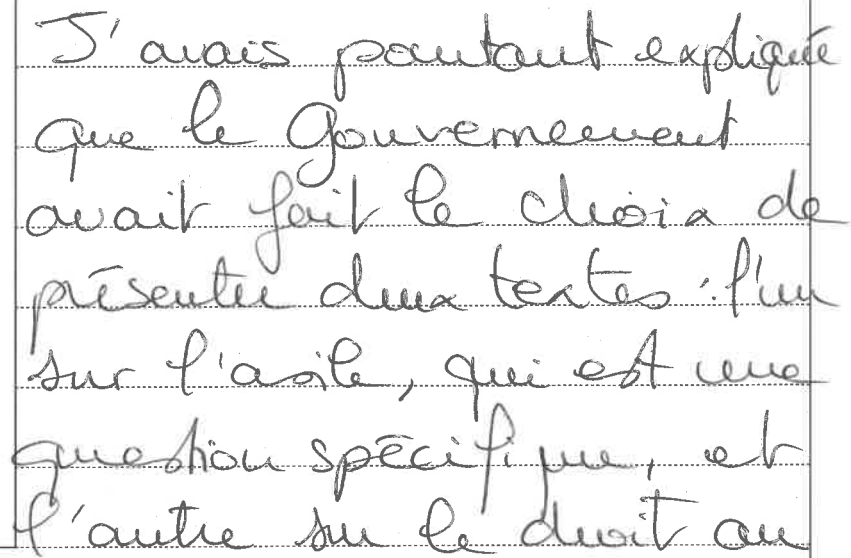 J'avais pourtant expliqué
que le Gouvernement
avait fait le choix de
présenter deux textes : l'un
sur l'asile, qui est une
question spécifique, et
l'autre sur le droit au